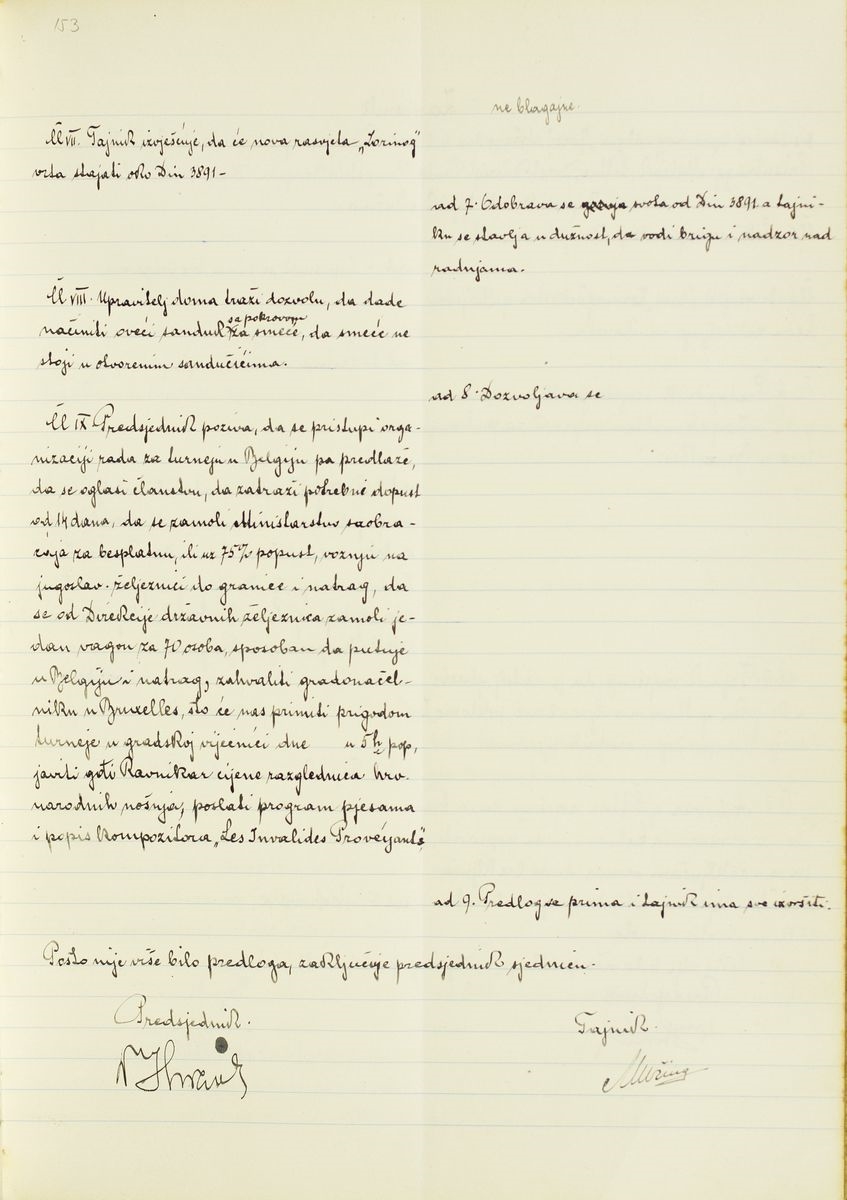 153
ne blagajne.
Al VII. Tajnik izvješćuje, da će nova rasvjeta „Zorinog"
vrta stajati oko Din 3891-
ad 7. Odobrava se svota od Din 3891 a tajni-
ku se stavlja u dužnost, da vodi brigu i nadzor nad
radnjama.
Al VIII. Upravitelj doma traži dozvolu, da dade
sa pokrovom
načiniti oveći sanduk za smeće, da smeće ne
stoji u otvorenim sandučićima.
ad 8. Dozvoljava se
Al IX Predsjednik poziva, da se pristupi orga-
nizaciji rada za turneju u Belgiju pa predlaže,
da se oglasi članstvu, da zatraži potrebne dopust
od 14 dana, da se zamoli Ministarstvo saobra-
ćaja za besplatnu, ili uz 75% popust, vožnju na
jugoslav. željeznici do granice i natrag, da
se od Direkcije državnih željeznica zamoli je-
dan vagon za 70 osoba, sposoban da putuje
u Belgiju i natrag, zahvaliti gradonačel-
niku u Bruxelles, što će nas primiti prigodom
turneje u gradskoj vijećnici dne u 5h pop,
javiti gđi Ravnikar cijene razglednica hrv.
narodnih nošnja, poslati program pjesama
i popis kompozitora „Les Invalides Prévoyants"
ad 9. Predlog se prima i tajnik ima sve izvršiti.
Pošto nije više bilo predloga, zaključuje predsjednik sjednicu.
Predsjednik.
Tajnik.